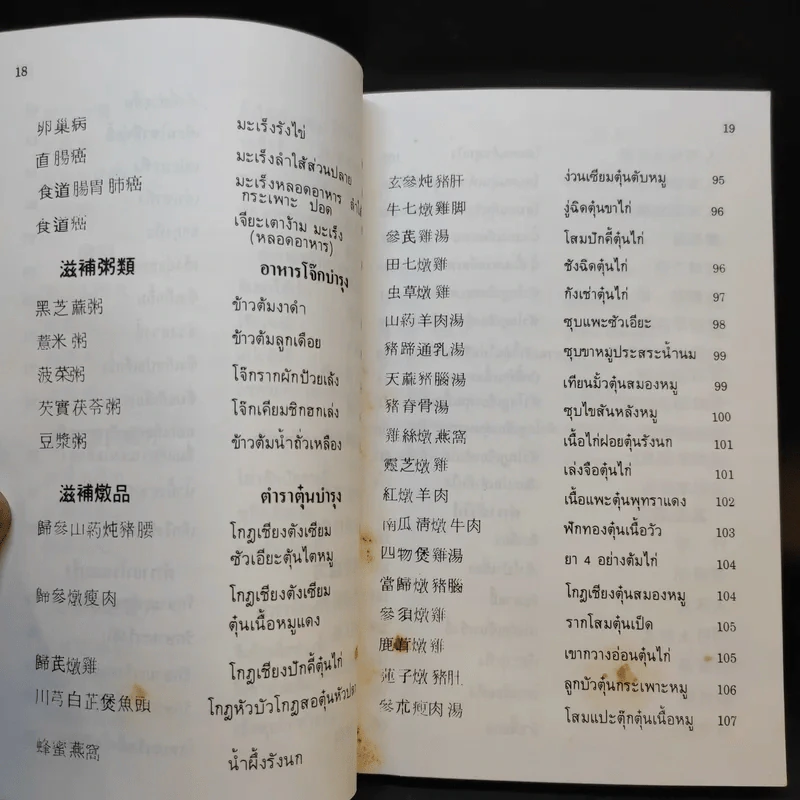 18
卵巢病 มะเร็งรังไข่
直腸癌 มะเร็งลำไส้ส่วนปลาย
食道腸胃肺癌 มะเร็งหลอดอาหาร ลำไ
กระเพาะ ปอด
食道癌 เจียะเตาง้าม มะเร็ง
(หลอดอาหาร)
滋補粥類 อาหารโจ๊กบำรุง
黑芝蔴粥 ข้าวต้มงาดำ
薏米粥 ข้าวต้มลูกเดือย
菠菜粥 โจ๊กรากผักป้วยเล้ง
芡實茯苓粥 โจ๊กเคียมซิกฮกเล่ง
豆漿粥 ข้าวต้มน้ำถั่วเหลือง
滋補燉品 ตำราตุ๋นบำรุง
歸參山葯炖豬腰 โกฎเชียงตังเซียม
ซัวเอียะตุ้นไตหมู
歸參燉瘦肉 โกฎเชียงตังเซียม
ตุ๋นเนื้อหมูแดง
歸芪燉雞 โกฎเชียงปักคี้ตุ๋นไก่
川芎白芷煲魚頭 โกฎหัวบัวโกฎสอตุ๋นหัวปลา
蜂蜜燕窩 น้ำผึ้งรังนก
19
玄參炖豬肝 ง่วนเซียมตุ๋นตับหมู 95
牛七燉雞脚 งู่ฉิดตุ๋นขาไก่ 96
參芪雞湯 โสมปักคี้ตุ๋นไก่
田七燉雞 ชังฉิดตุ๋นไก่ 96
虫草燉雞 กังเช่าตุ๋นไก่ 97
山葯羊肉湯 ซุบแพะซัวเอียะ 98
豬蹄通乳湯 ซุบขาหมูประสระน้ำนม 99
天蔴豬腦湯 เทียนมั้วตุ๋นสมองหมู 99
豬脊骨湯 ซุบไขสันหลังหมู 100
雞絲燉燕窩 เนื้อไก่ฝอยตุ๋นรังนก 101
靈芝燉雞 เล่งจือตุ๋นไก่ 101
紅燉羊肉 เนื้อแพะตุ๋นพุทราแดง 102
南瓜清燉牛肉 ฟักทองตุ๋นเนื้อวัว 103
四物煲雞湯 ยา 4 อย่างต้มไก่ 104
當歸燉豬腦 โกฎเชียงตุ๋นสมองหมู 104
參須燉雞 รากโสมตุ๋นเป็ด 105
鹿茸燉雞 เขากวางอ่อนตุ๋นไก่ 105
蓮子燉豬肚 ลูกบัวตุ๋นกระเพาะหมู 106
參朮瘦肉湯 โสมแปะตุ๊กตุ๋นเนื้อหมู 107